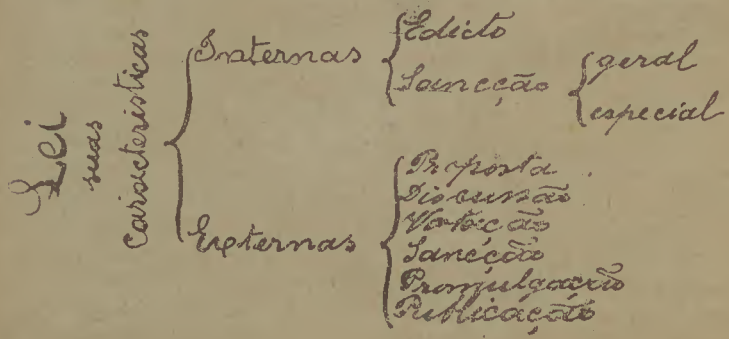 Lei
suas
caracteristicas
Internas
Edicto
Sancção
geral
especial
Externas
Proposta
Discussão
Votação
Sancção
Promulgação
Publicação